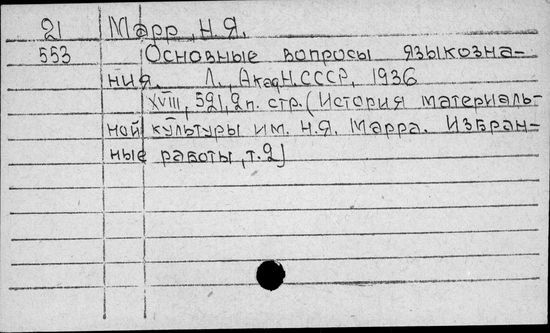 21 Марр, Н.Я.
553 Основные вопросы языкозна-
ния. Л., Акад.Н.СССР, 1936
XVIII, 521, 2 п. стр. (История материаль-
ной культуры им. Н.Я. Марра. Избран-
ные работы, т.2)